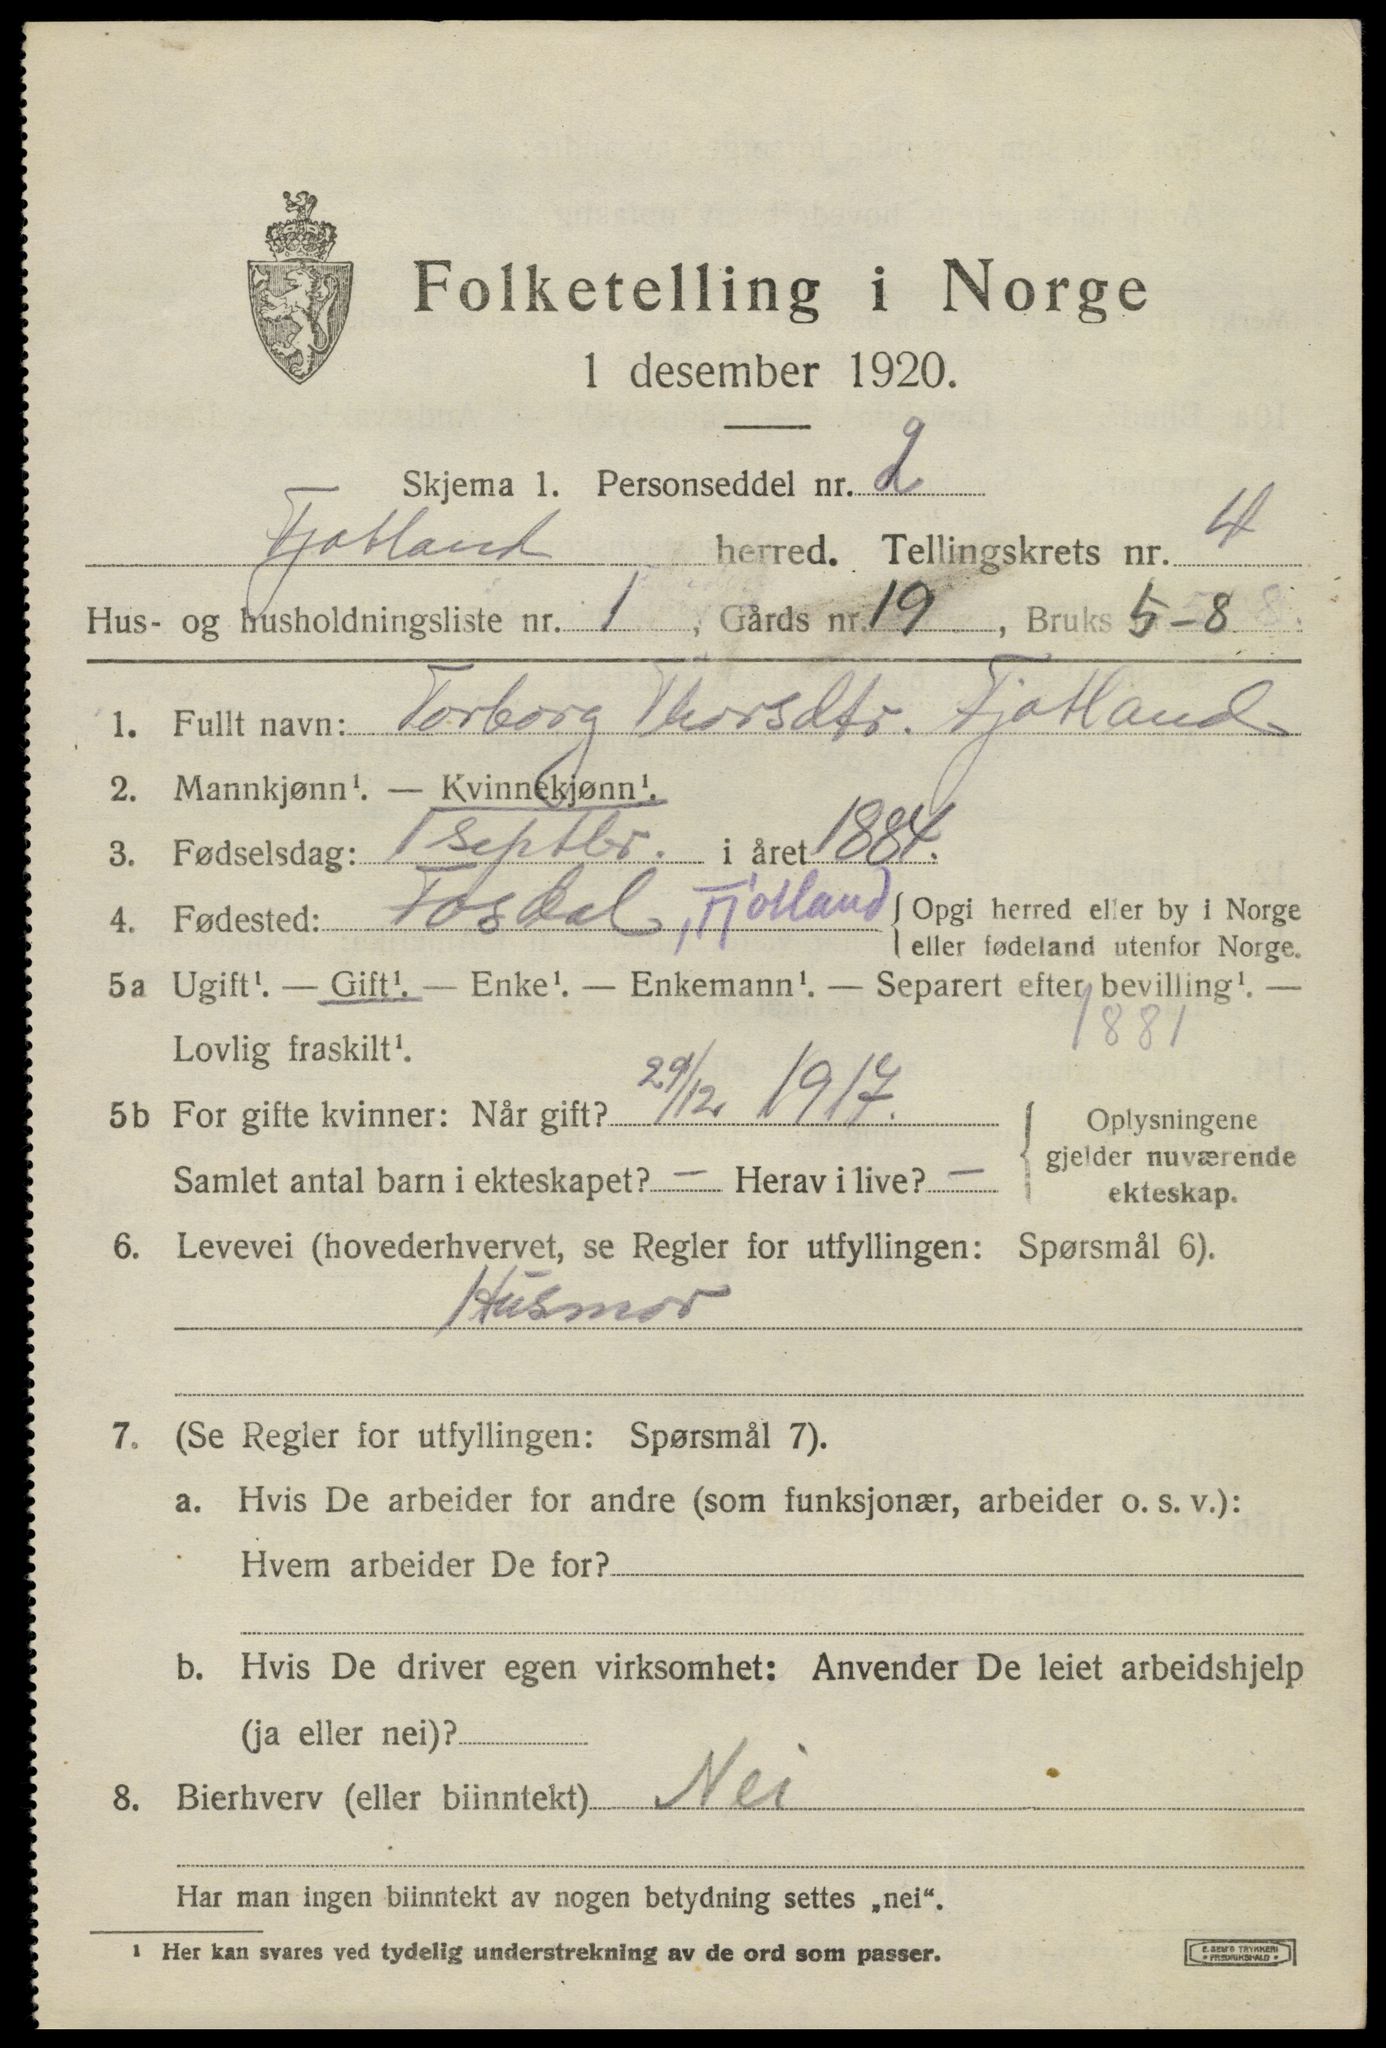 Folketelling i Norge
1 desember 1920.
Skjema 1. Personseddel nr. 2
Fjotland herred. Tellingskrets nr. 4
Hus- og husholdningsliste nr. 1, Gårds nr. 19, Bruks 5-8
1. Fullt navn: Torborg Thorsdtr. Fjotland
2. Mannkjønn¹. — Kvinnekjønn¹.
3. Fødselsdag: 1 septbr. i året 1884.
4. Fødested: Fosdal, Fjotland {Opgi herred eller by i Norge
eller fødeland utenfor Norge.
5a Ugift¹. — Gift¹. — Enke¹. — Enkemann¹. — Separert efter bevilling¹. —
1881
Lovlig fraskilt¹.
5b For gifte kvinner: Når gift? 29/12 1917. Oplysningene
gjelder nuværende
Samlet antal barn i ekteskapet? — Herav i live? — ekteskap.
6. Levevei (hovederhvervet, se Regler for utfyllingen: Spørsmål 6).
Husmor
7. (Se Regler for utfyllingen: Spørsmål 7).
a. Hvis De arbeider for andre (som funksjonær, arbeider o. s. v.):
Hvem arbeider De for?
b. Hvis De driver egen virksomhet: Anvender De leiet arbeidshjelp
(ja eller nei)?
8. Bierhverv (eller biinntekt) Nei
Har man ingen biinntekt av nogen betydning settes „nei“.
¹ Her kan svares ved tydelig understrekning av de ord som passer.
E. SEM'S TRYKKERI
• FREDRIKSHALD •